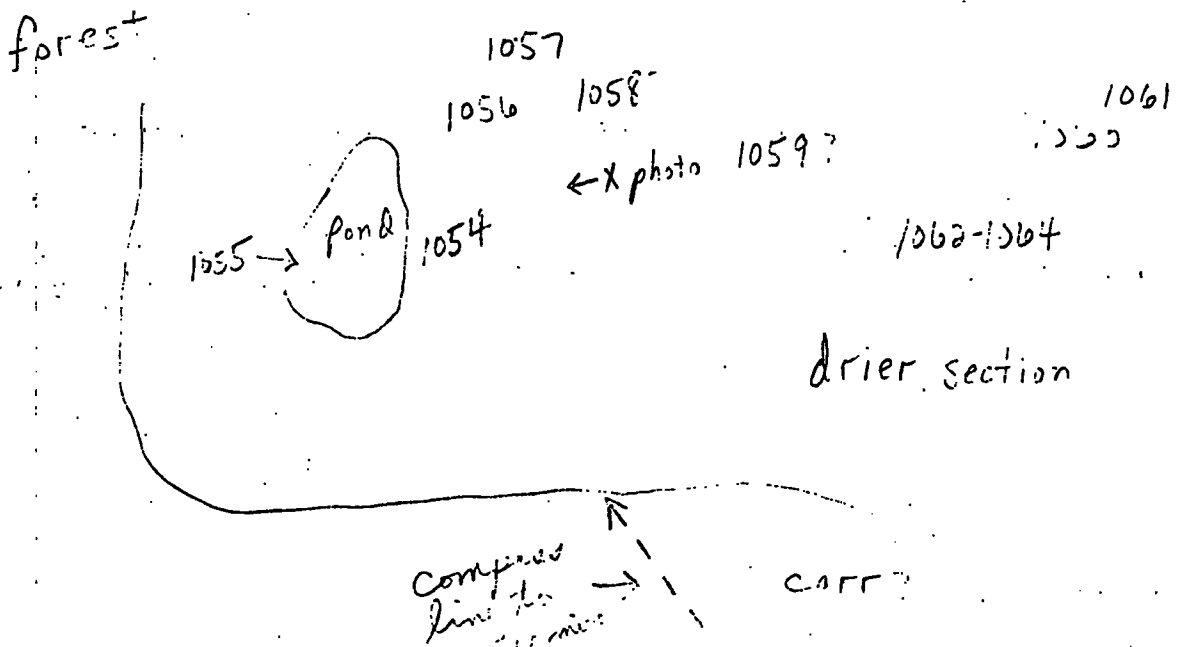 forest
1057
1056 1058
1061
←x photo 1059?
pond
1055→
1054
1062-1064
drier section
line to →
carr?